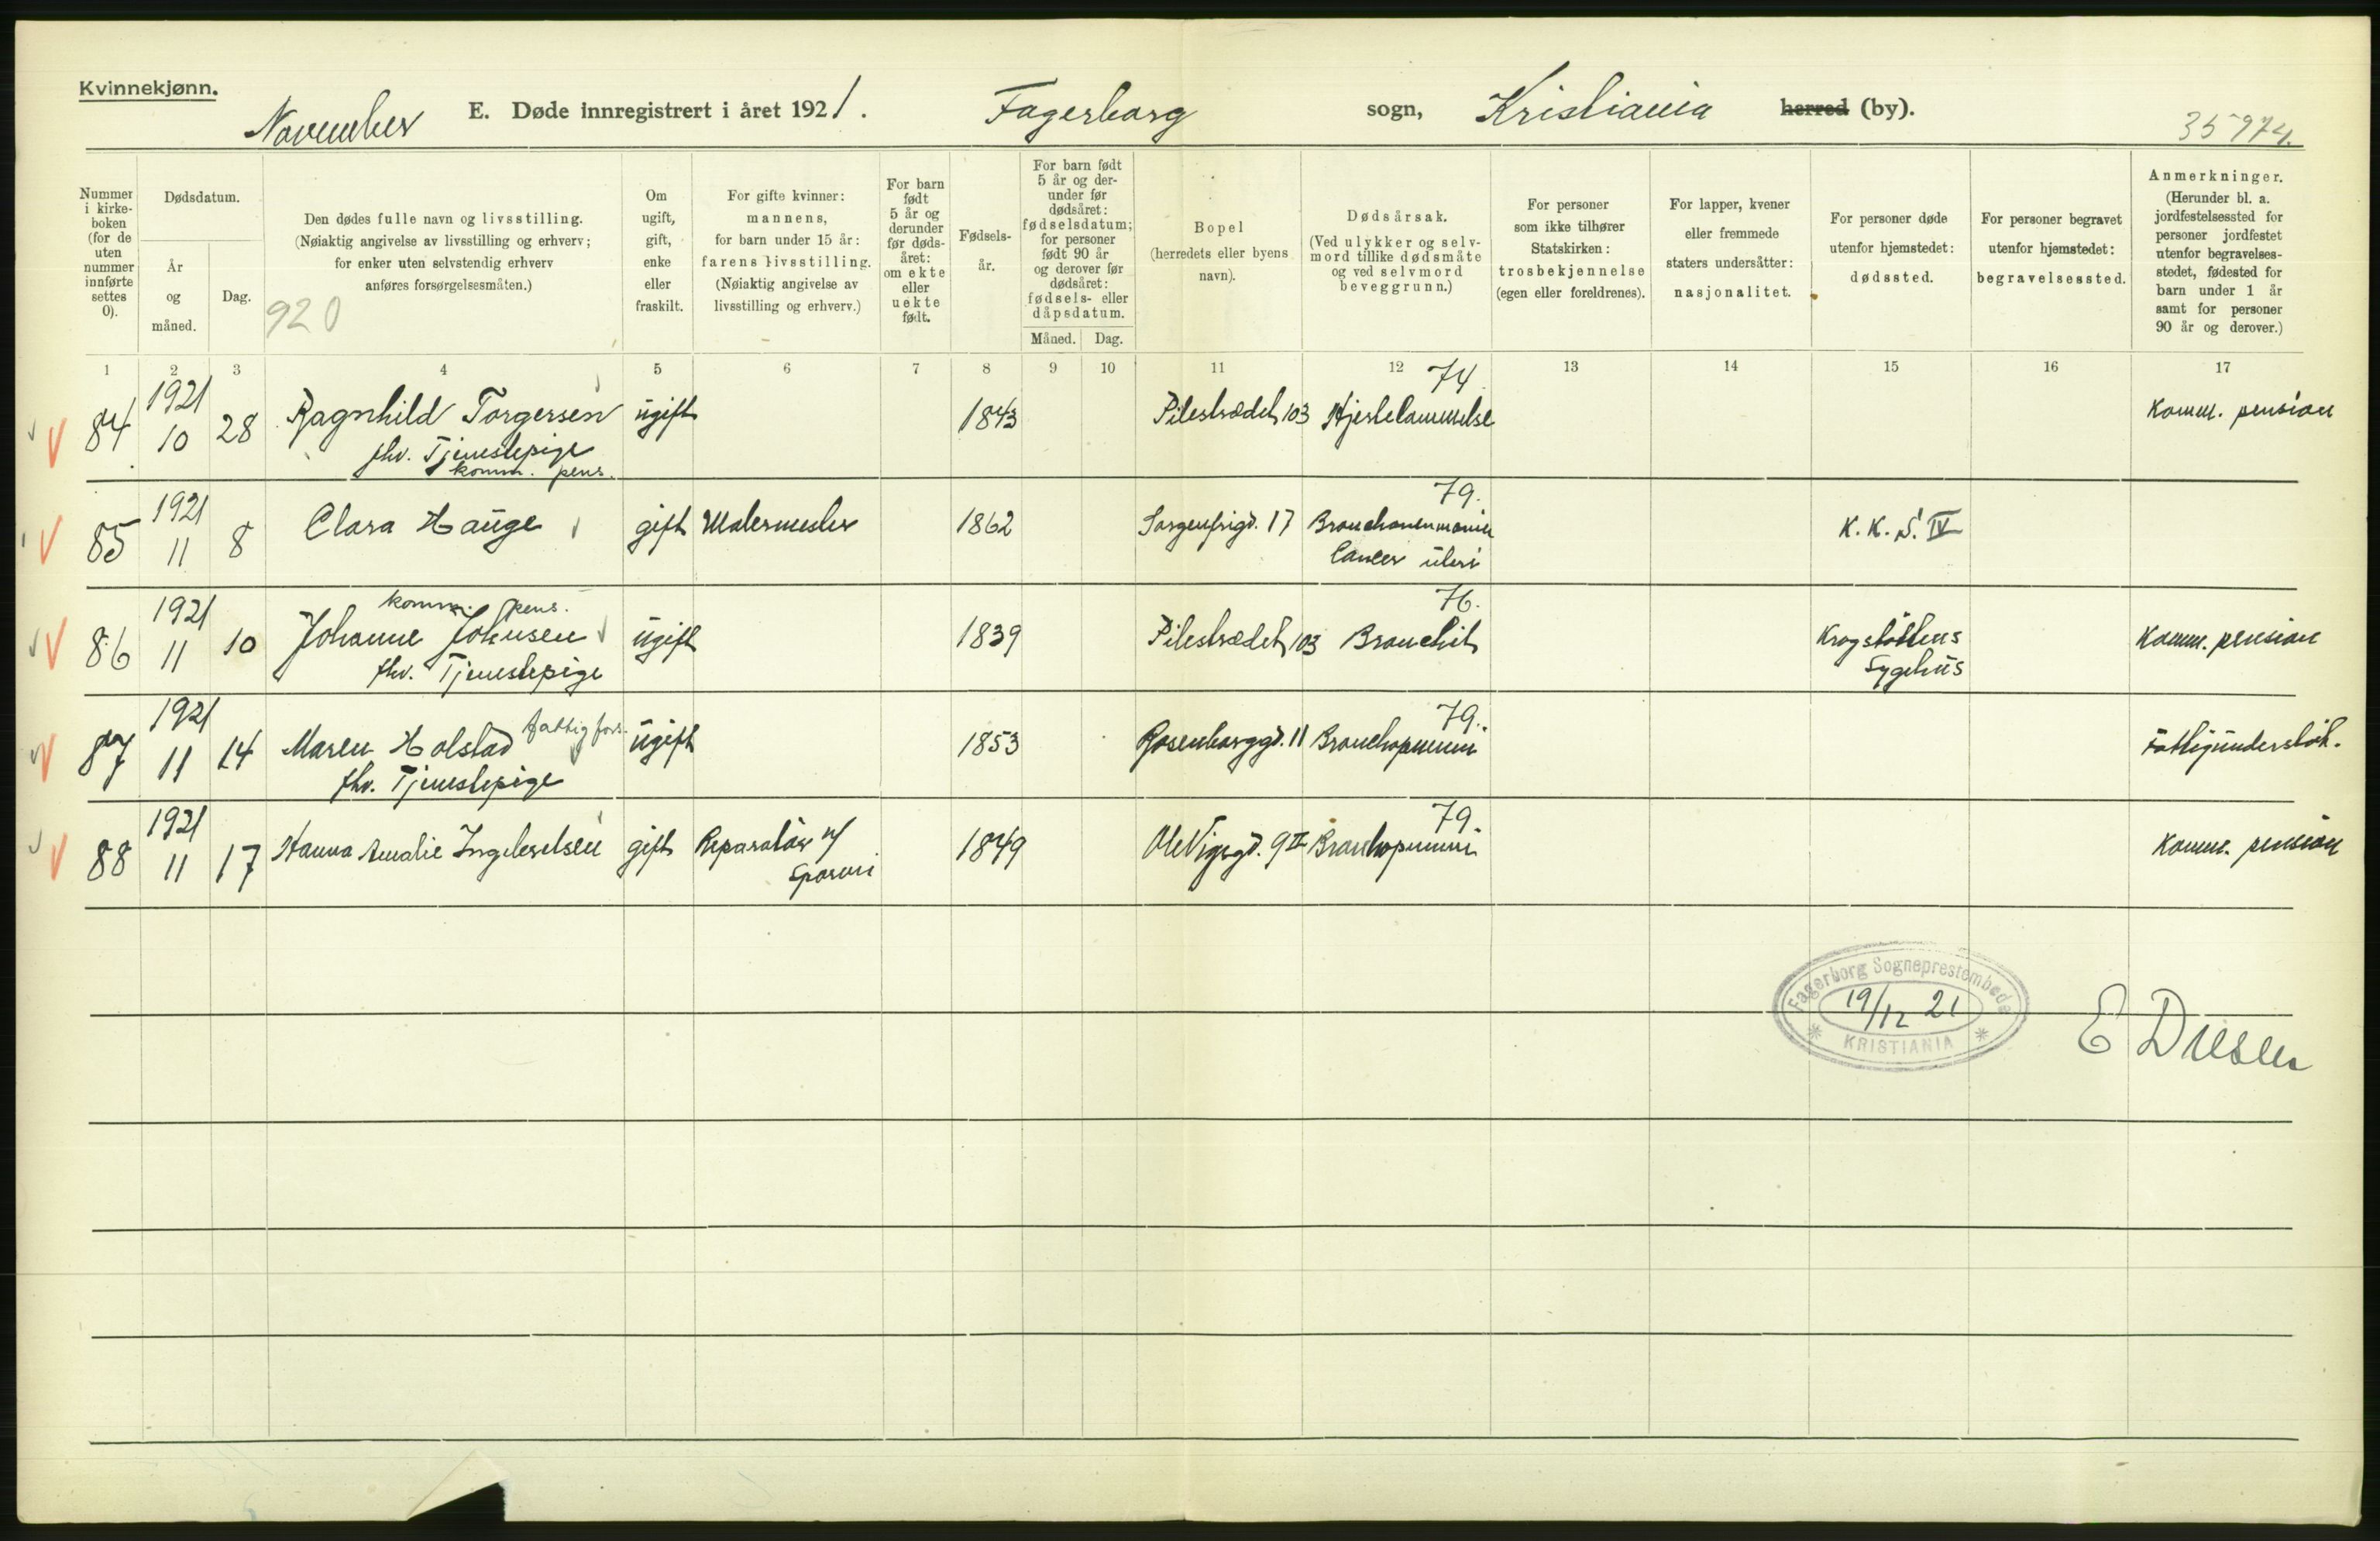 Kvinnekjønn.
November E. Døde innregistrert i året 1921. Fagerborg sogn, Kristiania herred (by).
35974.
Nummer i kirkeboken (for de uten nummer innførte settes 0).
Dødsdatum.
År og måned.
Dag.
Den dødes fulle navn og livsstilling.
(Nøiaktig angivelse av livsstilling og erhverv;
for enker uten selvstendig erhverv
anføres forsørgelsesmåten.)
920
Om ugift, gift, enke eller fraskilt.
For gifte kvinner:
mannens,
for barn under 15 år:
farens livsstilling.
(Nøiaktig angivelse av
livsstilling og erhverv.)
For barn født 5 år og derunder før dødsåret: om ekte eller uekte født.
Fødselsår.
For barn født 5 år og derunder før dødsåret: fødselsdatum; for personer født 90 år og derover før dødsåret: fødsels- eller dåpsdatum.
Måned. Dag.
Bopel
(herredets eller byens
navn).
Dødsårsak.
(Ved ulykker og selvmord tillike dødsmåte og ved selvmord beveggrunn.)
For personer
som ikke tilhører
Statskirken:
trosbekjennelse
(egen eller foreldrenes).
For lapper, kvener
eller fremmede
staters undersåtter:
nasjonalitet.
For personer døde
utenfor hjemstedet:
dødssted.
For personer begravet
utenfor hjemstedet:
begravelsessted.
Anmerkninger.
(Herunder bl. a.
jordfestelsessted for
personer jordfestet
utenfor begravelsesstedet, fødested for
barn under 1 år
samt for personer
90 år og derover.)
1 2 3 4 5 6 7 8 9 10 11 12 13 14 15 16 17
84 1921 10 28 Ragnhild Torgersen ugift 1843 Pilestrædet 103 74. Hjertelammelse Komm. pension
fhv. Tjenestepige
komm. pens.
85 1921 11 8 Clara Hauge gift Malermester 1862 Sorgenfrigd. 17 79. K.K.S. IV
Cancer uteri
komm. pens. 76.
86 1921 11 10 Johanne Johnsen ugift 1839 Pilestrædet 103 Bronchit Krogstøttens Sygehus Komm. pension
fhv. Tjenestepige
87 1921 11 14 Maren Holstad fattigfors. ugift 1853 Rosenborggd. 11 79. Bronchopneumoni Fattigunderstøt.
fhv. Tjenestepige
88 1921 11 17 Hanna Amalie Ingebretsen gift Reparatør v/ Sporvei 1849 Ole Vigsgd. 9 II 79. Bronchopneumoni Komm. pension
Fagerborg Sogneprestembede
19/12 21
KRISTIANIA